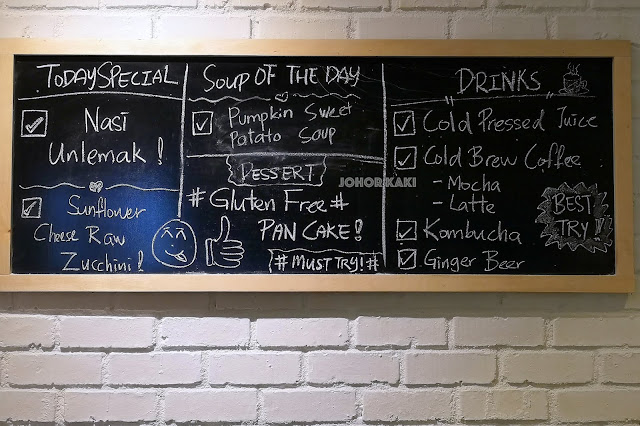 TODAY SPECIAL
Nasi
Unlemak!
Sunflower
Cheese Raw
Zucchini!
SOUP OF THE DAY
Pumpkin Sweet
Patato Soup
DESSERT
#Gluten Free#
PAN CAKE!
#MUST TRY!#
JOHOR KAKI
DRINKS
Cold Pressed Juice
Cold Brew Coffee
- Mocha
- Latte
Kombucha
Ginger Beer
BEST
TRY!